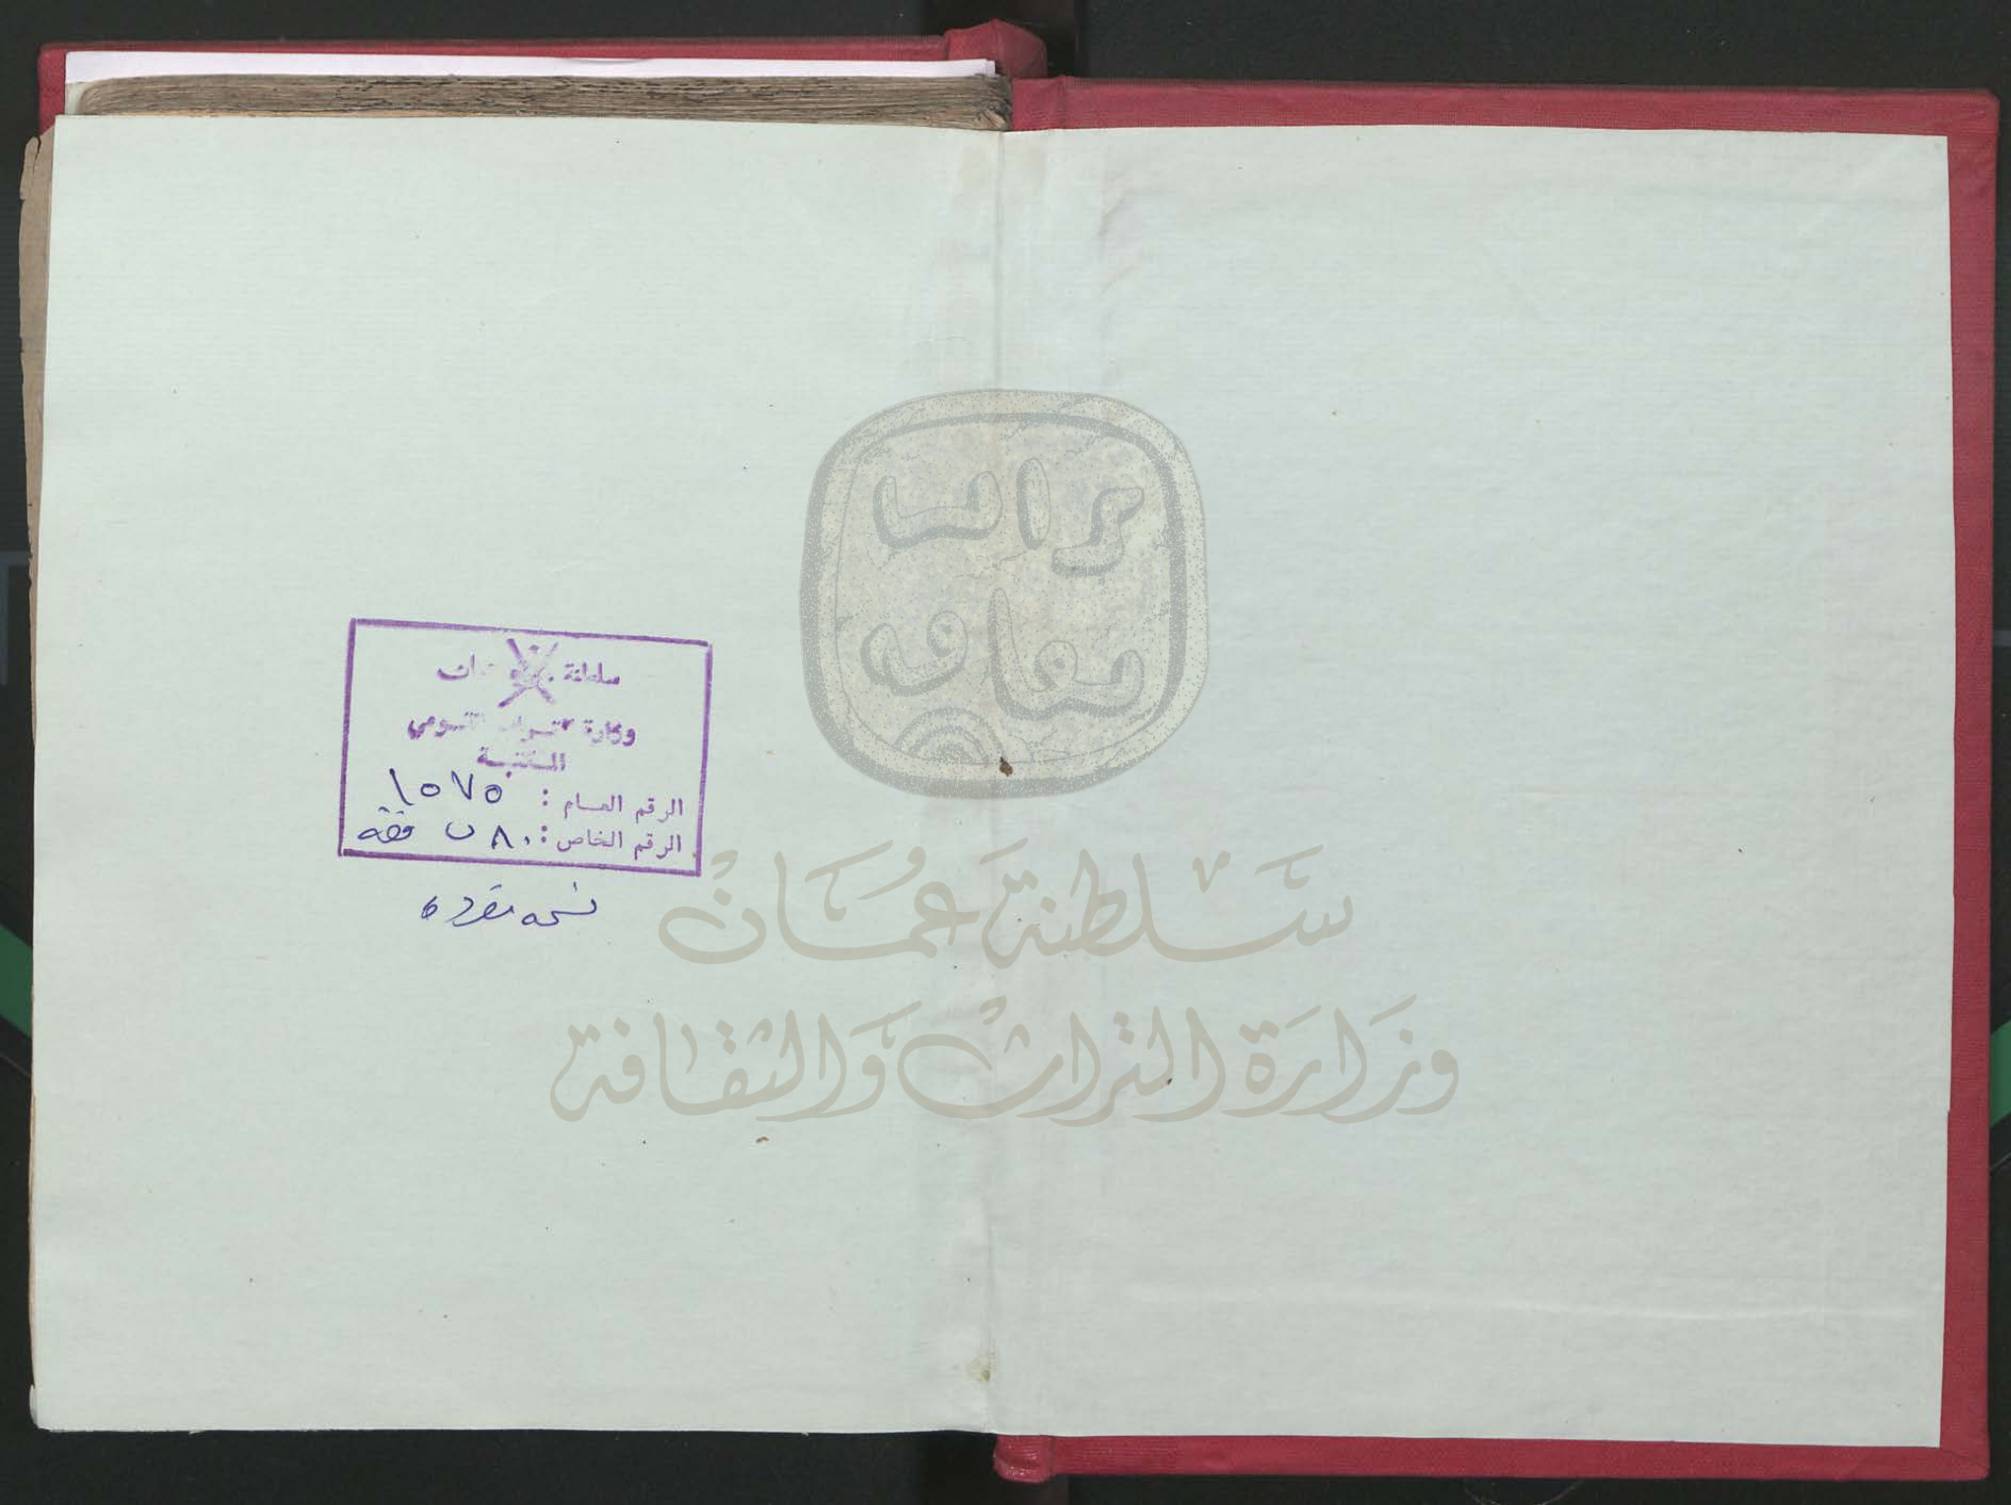 سلطنة عمان
وزارة التراث القومي
المكتبة
الرقم العام : ١٥٧٥
الرقم الخاص : ٨٠ ب فقه
نسخه مفرده
سلطنة عمان
وزارة التراث والثقافة